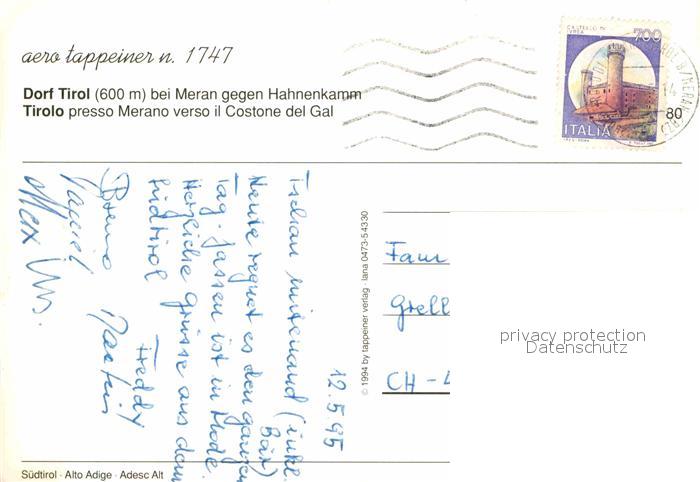 aero tappeiner n. 1747
Dorf Tirol (600 m) bei Meran gegen Hahnenkamm
Tirolo presso Merano verso il Costone del Gal
CASTELLO DI
IVREA
700
ITALIA
80
12.5.95
Tschau mitenand (inkl.
Bäx)
Heute regnet es den ganzen
Tag. Jassen ist in Mode.
Herzliche Grüsse aus dem
Südtirol
Freddy
Bruno
Martin
Daniel
Max Urs.
© 1994 by tappeiner verlag · lana 0473-54330
Fam
Grell
CH -
privacy protection
Datenschutz
Südtirol · Alto Adige · Adesc Alt